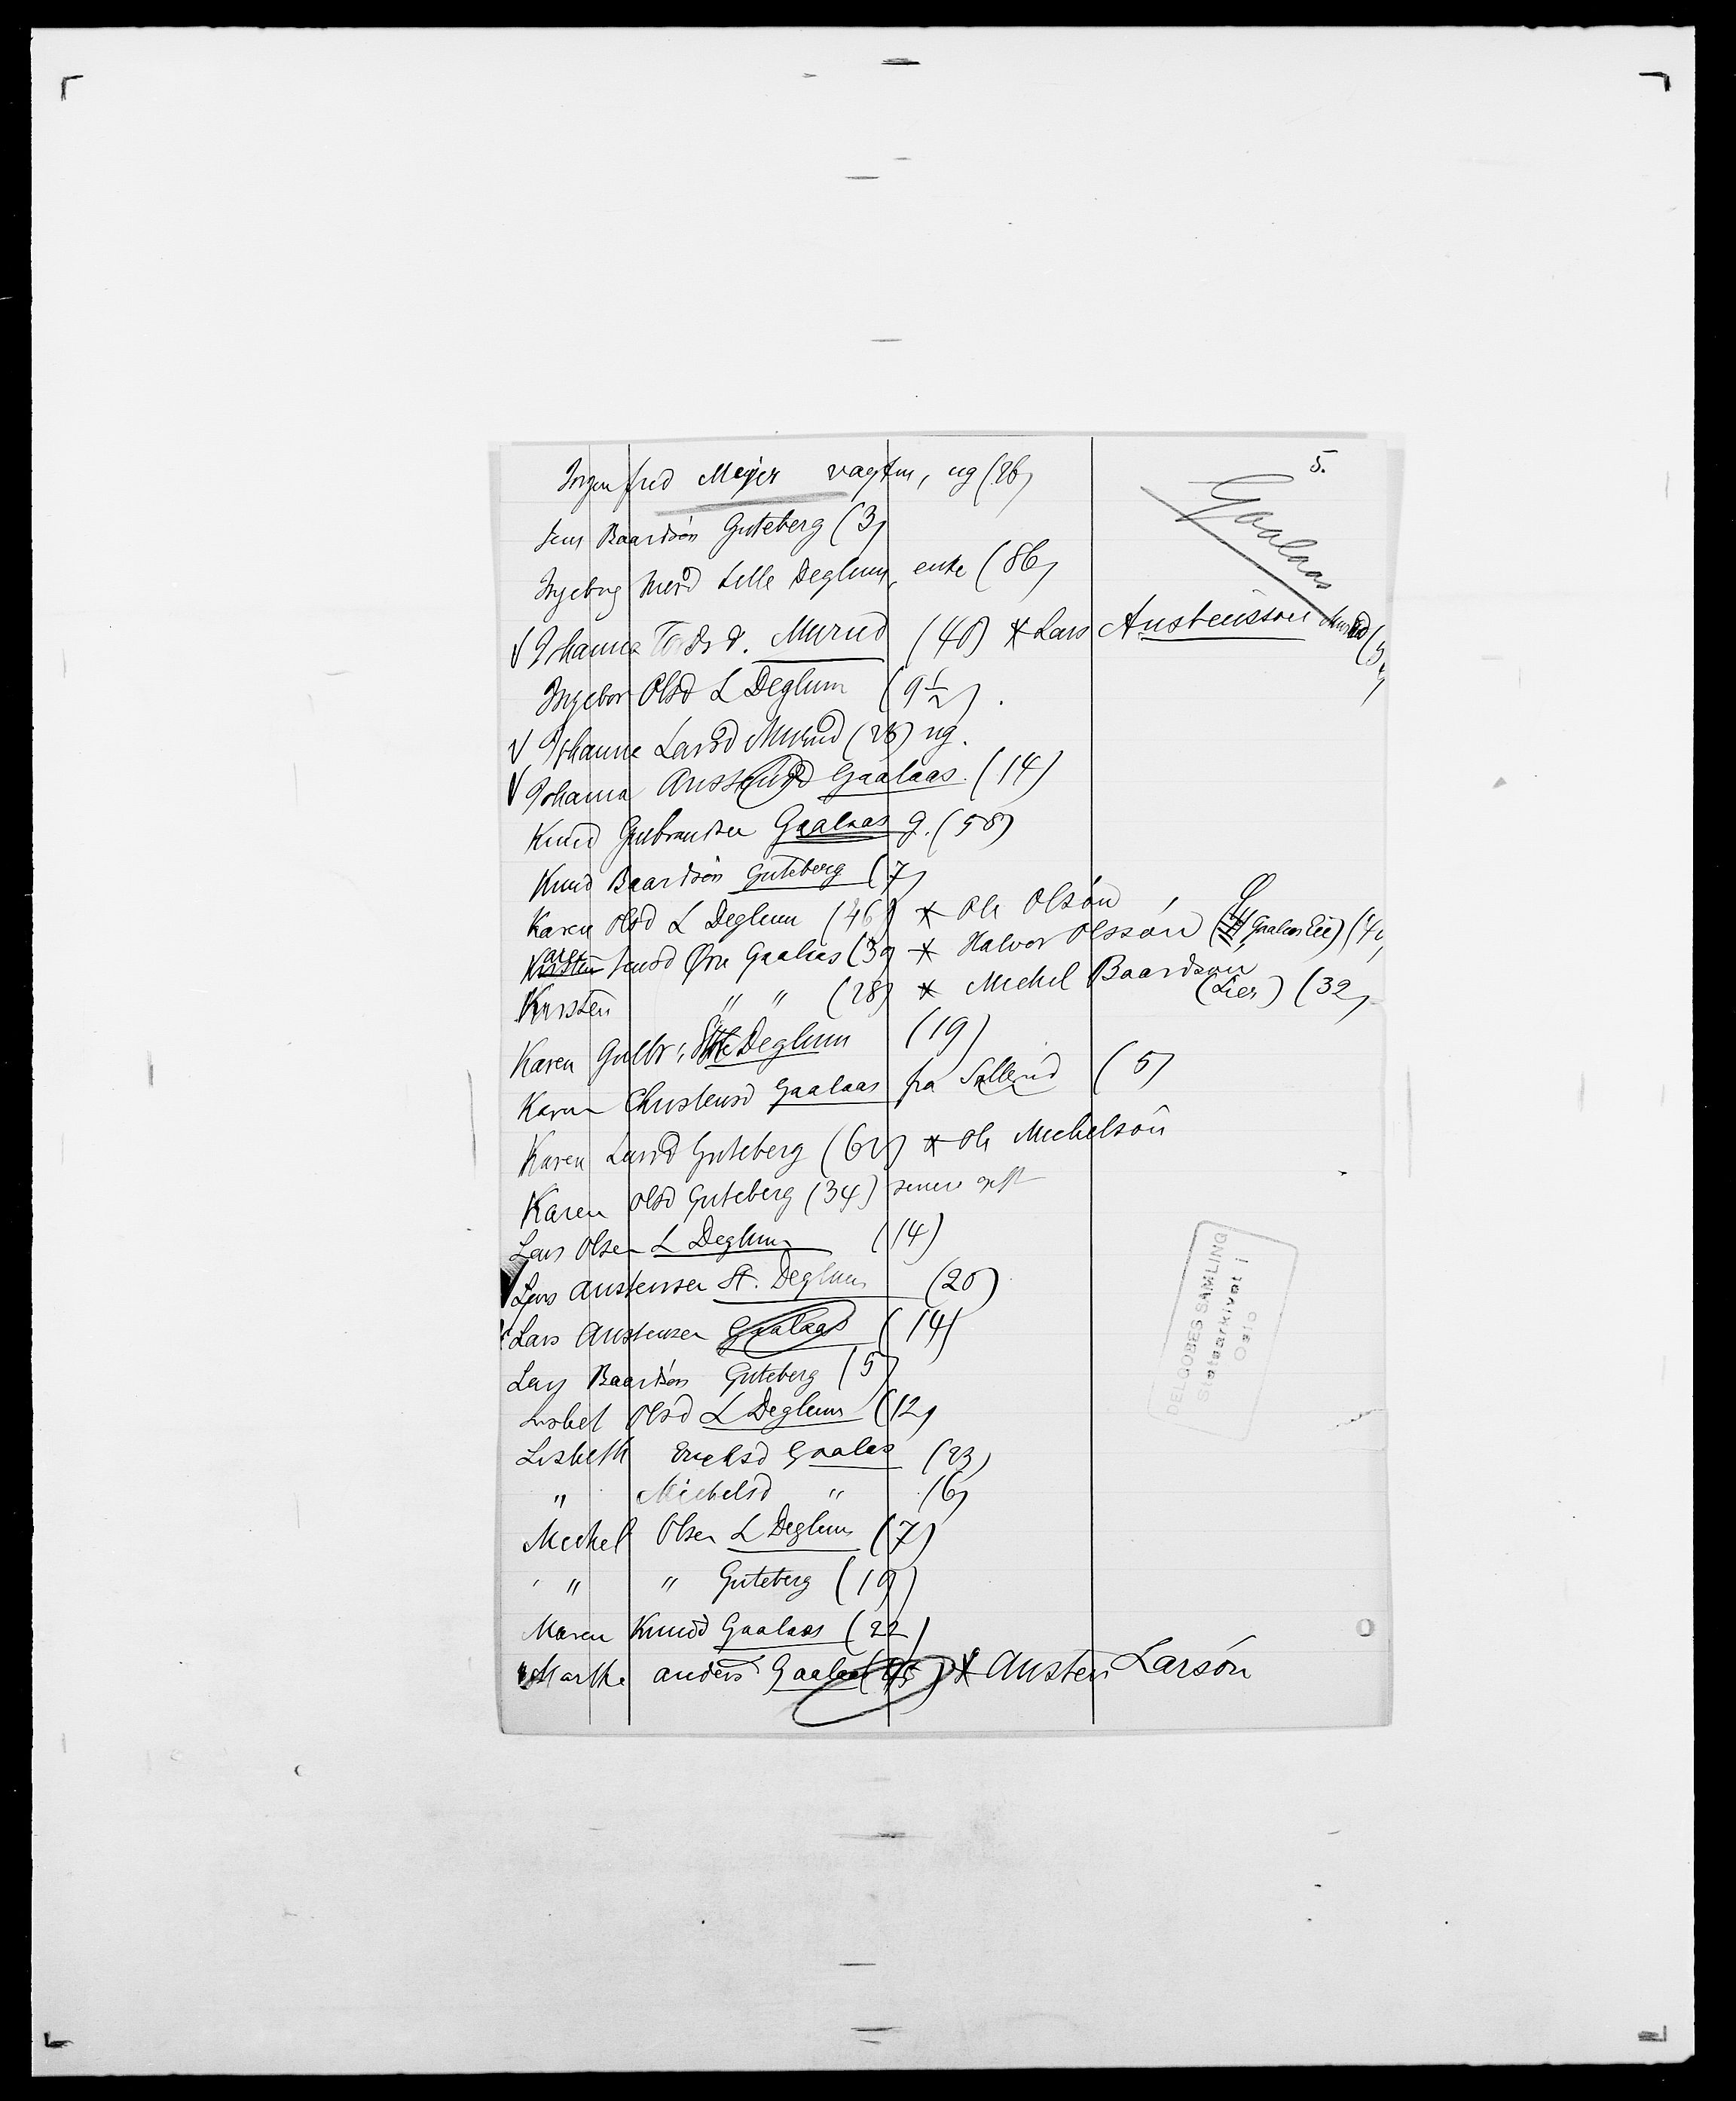 5.
Gaalaas
Jørgen fred Meyer vagtm, ug (26)
Jens Baardsön Guteberg (3)
Ingebrg Iversd Lille Deglum, enke (86)
√ Johanne Tordsd. Murud (40) * Lars Austensson Murud
Ingebor Olsd L Deglum (9 1/2).
√ Johanne Larsd Murud (28) ug.
√ Johanna Austensd Gaalaas. (14)
Knud Gulbrandsen Gaalaas g. (58)
Knud Baardsön Guteberg (7)
Karen Olsd L Deglum (46) * Ole Olsön
Karen Jensd Øvre Gaalaas (39) * Halvor Olssön (Gaalas Eie) (40)
Kirsten " " (28) * Michel Baardsøn (Lier) (32)
Karen Gulbr. Lille Deglum (19)
Karen Christensd Gaalaas fra Sollerud (5)
Karen Larsd Guteberg (62) * Ole Michelsön
Karen Olsd Guteberg (34) senere gift
Lars Olsen L Deglum (14)
√ Lars Austensen St. Deglum (20)
Lars Austensen Gaalaas (14)
Lars Baardsön Guteberg (5)
Lisbet Olsd L Deglum (12)
Lisbeth Ericksd Gaalas (23)
" Michelsd " (6)
Michel Olsen L Deglum (7)
" " Guteberg (19)
Maren Knudsd Gaalaas (22)
Marthe Anders Gaalaas (45) * Austen Larsön
DELGOBES SAMLING
Statsarkivet i
Oslo